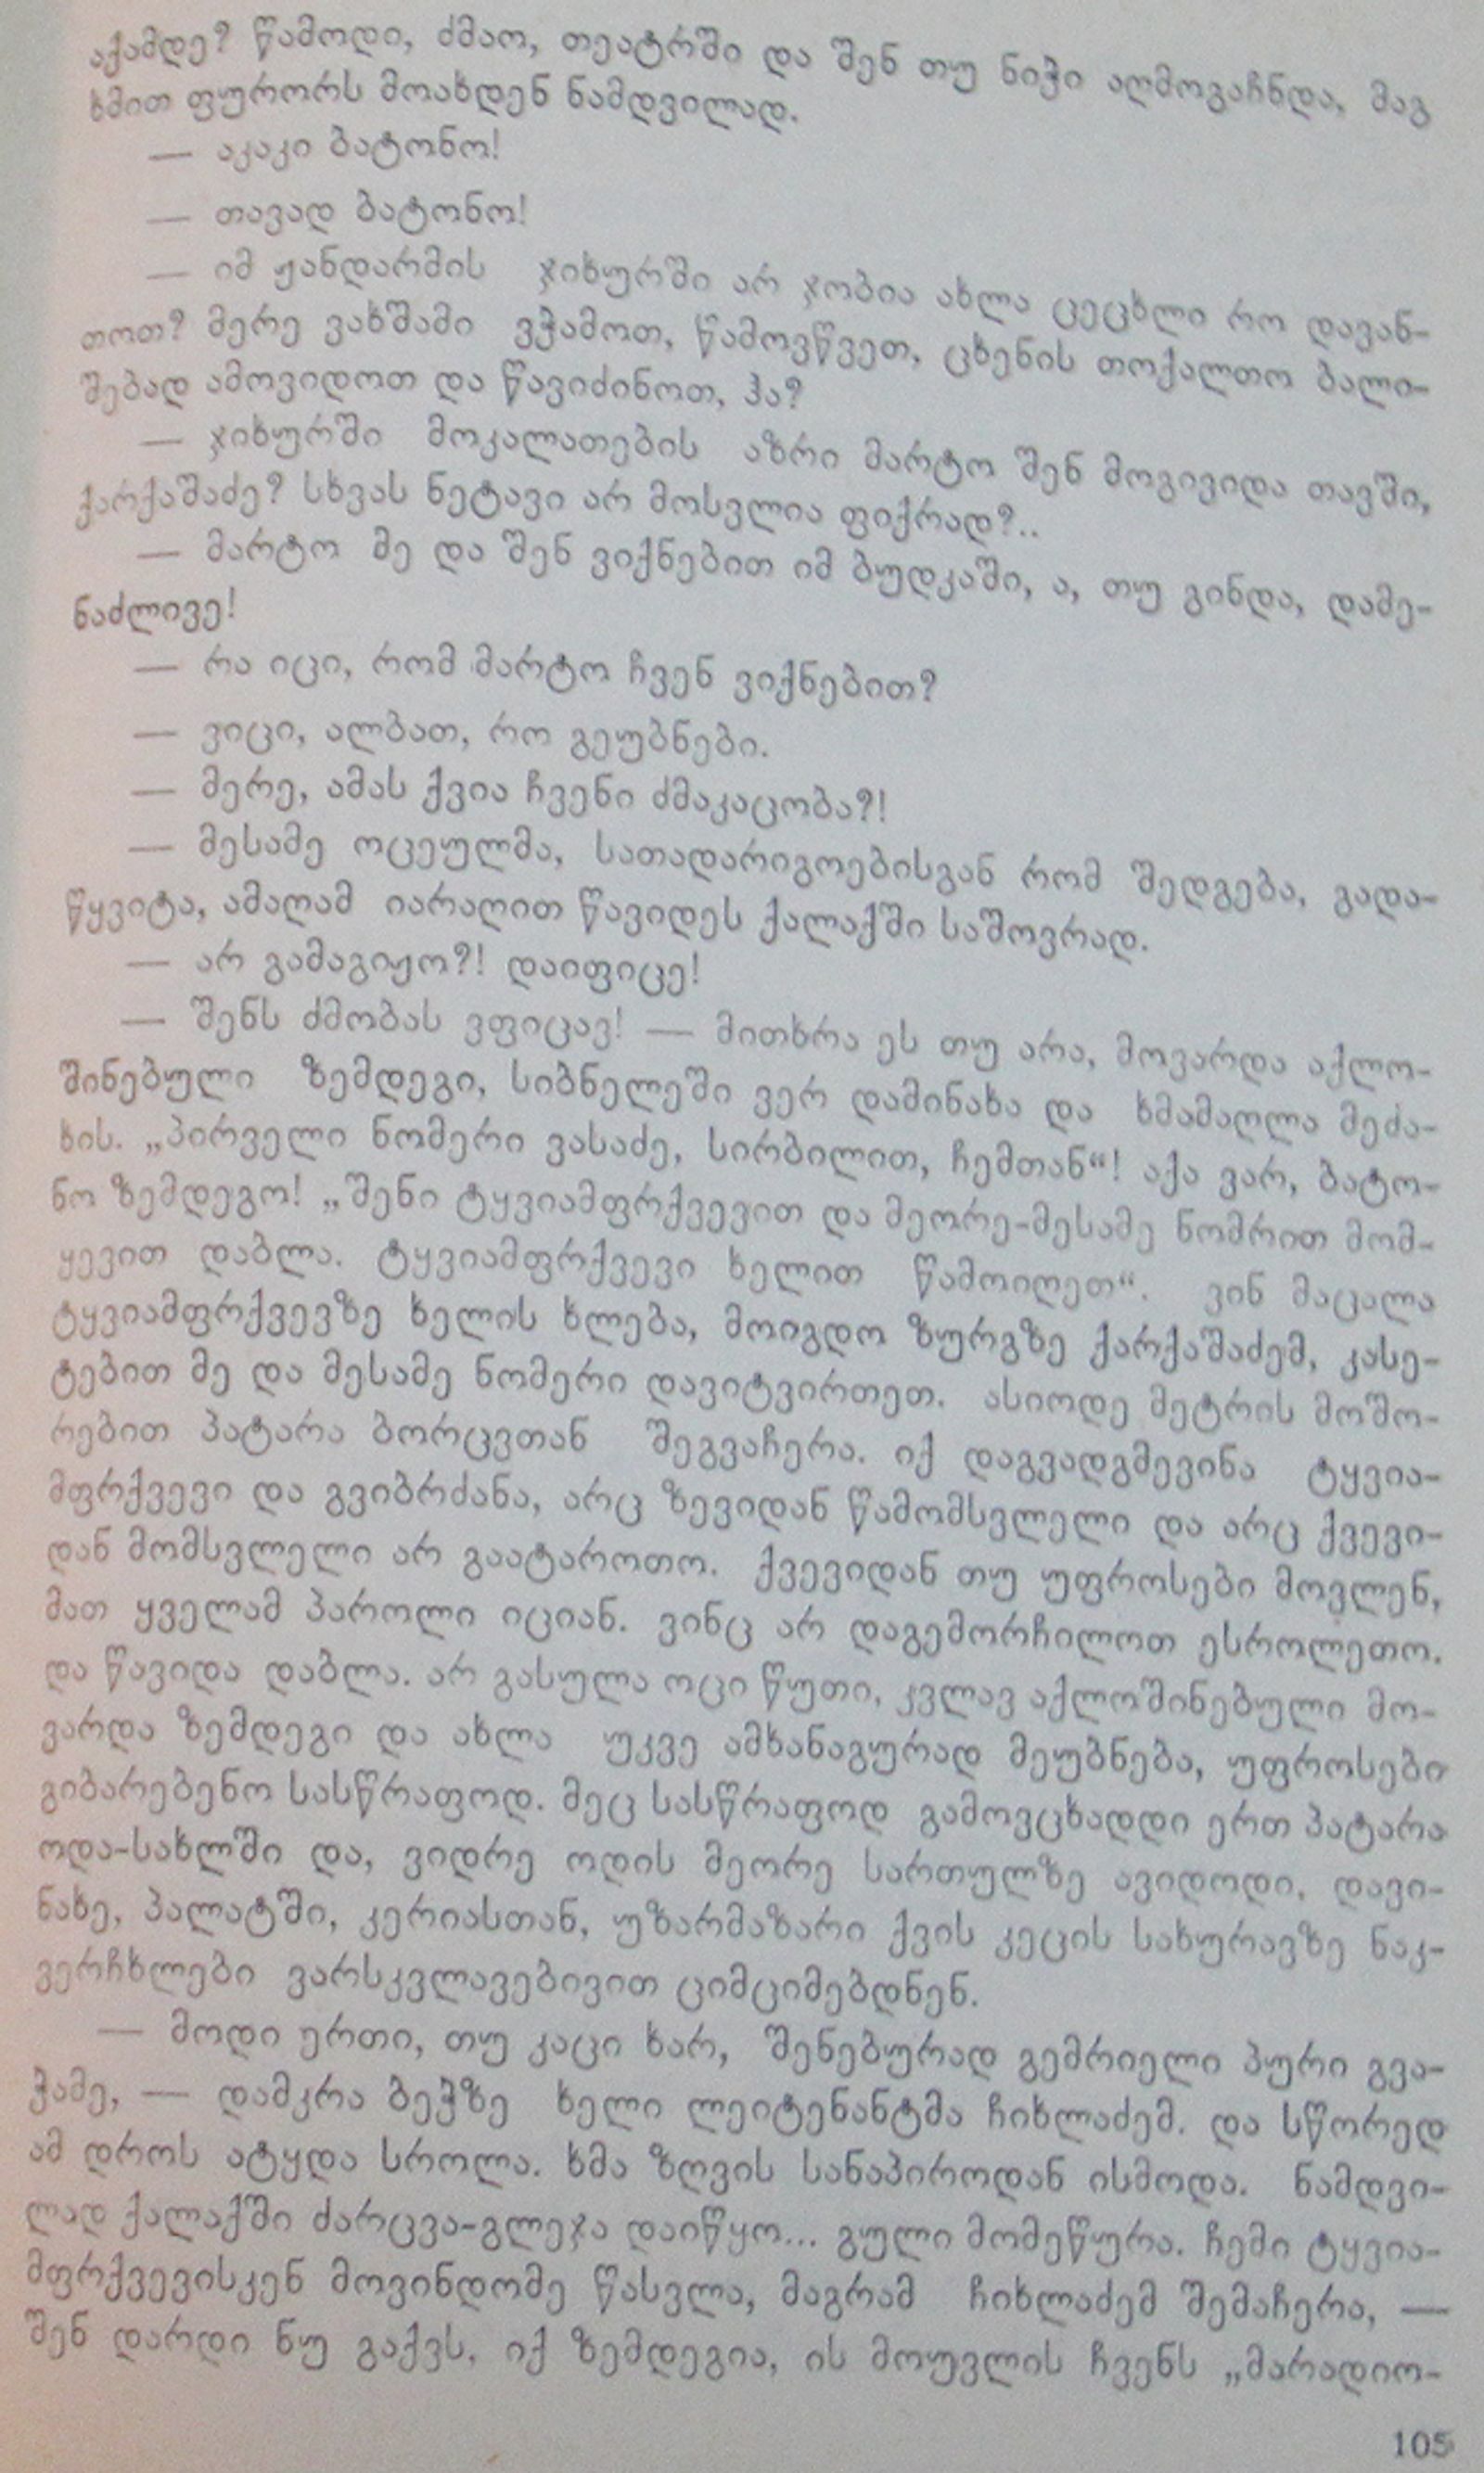 აქამდე? წამოდი, ძმაო, თეატრში და შენ თუ ნიჭი აღმოგაჩნდა, მაგ
ხმით ფურორს მოახდენ ნამდვილად.
— აკაკი ბატონო!
— თავად ბატონო!
— იმ ჟანდარმის ჯიხურში არ ჯობია ახლა ცეცხლი რო დავან-
თოთ? მერე ვახშამი ვჭამოთ, წამოვწვეთ, ცხენის თოქალთო ბალი-
შებად ამოვიდოთ და წავიძინოთ, ჰა?
— ჯიხურში მოკალათების აზრი მარტო შენ მოგივიდა თავში,
ქარქაშაძე? სხვას ნეტავი არ მოსვლია ფიქრად?..
— მარტო მე და შენ ვიქნებით იმ ბუდკაში, ა, თუ გინდა, დამე-
ნაძლივე!
— რა იცი, რომ მარტო ჩვენ ვიქნებით?
— ვიცი, ალბათ, რო გეუბნები.
— მერე, ამას ქვია ჩვენი ძმაკაცობა?!
— მესამე ოცეულმა, სათადარიგოებისგან რომ შედგება, გადა-
წყვიტა, ამაღამ იარაღით წავიდეს ქალაქში საშოვრად.
— არ გამაგიჟო?! დაიფიცე!
— შენს ძმობას ვფიცავ! — მითხრა ეს თუ არა, მოვარდა აქლო-
შინებული ზემდეგი, სიბნელეში ვერ დამინახა და ხმამაღლა მეძა-
ხის. „პირველი ნომერი ვასაძე, სირბილით, ჩემთან“! აქა ვარ, ბატო-
ნო ზემდეგო! „შენი ტყვიამფრქვევით და მეორე-მესამე ნომრით მომ-
ყევით დაბლა. ტყვიამფრქვევი ხელით წამოიღეთ“. ვინ მაცალა
ტყვიამფრქვევზე ხელის ხლება, მოიგდო ზურგზე ქარქაშაძემ, კასე-
ტებით მე და მესამე ნომერი დავიტვირთეთ. ასიოდე მეტრის მოშო-
რებით პატარა ბორცვთან შეგვაჩერა. იქ დაგვადგმევინა ტყვია-
მფრქვევი და გვიბრძანა, არც ზევიდან წამომსვლელი და არც ქვევი-
დან მომსვლელი არ გაატაროთო. ქვევიდან თუ უფროსები მოვლენ,
მათ ყველამ პაროლი იციან. ვინც არ დაგემორჩილოთ ესროლეთო.
და წავიდა დაბლა. არ გასულა ოცი წუთი, კვლავ აქლოშინებული მო-
ვარდა ზემდეგი და ახლა უკვე ამხანაგურად მეუბნება, უფროსები
გიბარებენო სასწრაფოდ. მეც სასწრაფოდ გამოვცხადდი ერთ პატარა
ოდა-სახლში და, ვიდრე ოდის მეორე სართულზე ავიდოდი, დავი-
ნახე, პალატში, კერიასთან, უზარმაზარი ქვის კეცის სახურავზე ნაკ-
ვერჩხლები ვარსკვლავებივით ციმციმებდნენ.
— მოდი ერთი, თუ კაცი ხარ, შენებურად გემრიელი პური გვა-
ჭამე, — დამკრა ბეჭზე ხელი ლეიტენანტმა ჩიხლაძემ. და სწორედ
ამ დროს ატყდა სროლა. ხმა ზღვის სანაპიროდან ისმოდა. ნამდვი-
ლად ქალაქში ძარცვა-გლეჯა დაიწყო... გული მომეწურა. ჩემი ტყვია-
მფრქვევისკენ მოვინდომე წასვლა, მაგრამ ჩიხლაძემ შემაჩერა, —
შენ დარდი ნუ გაქვს, იქ ზემდეგია, ის მოუვლის ჩვენს „მარადიო-
105